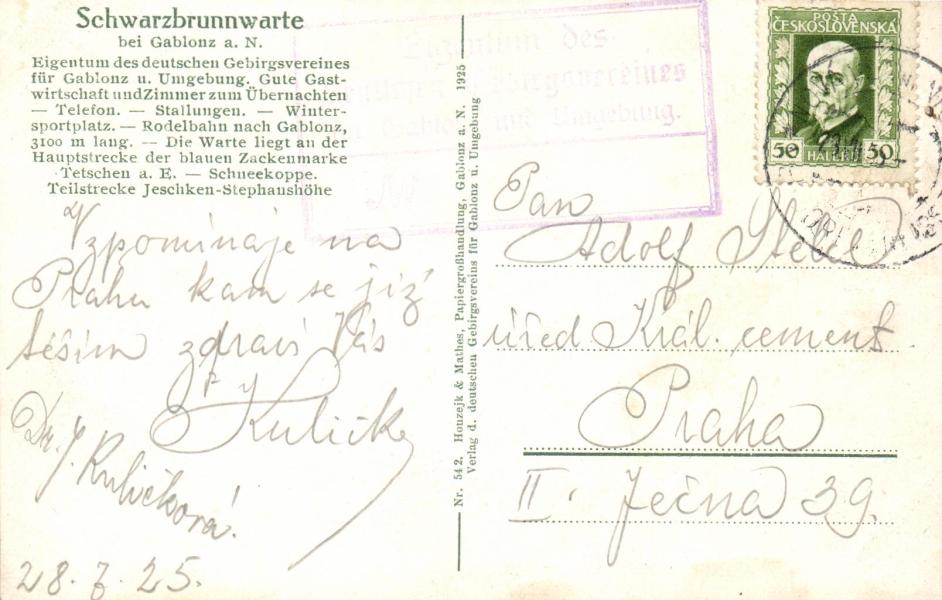 Schwarzbrunnwarte
bei Gablonz a. N.
Eigentum des deutschen Gebirgsvereines
für Gablonz u. Umgebung. Gute Gast-
wirtschaft und Zimmer zum Übernachten
— Telefon. — Stallungen. — Winter-
sportplatz. — Rodelbahn nach Gablonz,
3100 m lang. — Die Warte liegt an der
Hauptstrecke der blauen Zackenmarke
Tetschen a. E. — Schneekoppe.
Teilstrecke Jeschken-Stephanshöhe
Vzpomínaje na
Prahu kam se již
těším zdraví Vás
Kulička
Dr. J. Kuličková
28. 7. 25.
Nr. 542. Houzejk & Mathes, Papiergroßhandlung, Gablonz a. N. 1925
Verlag d. deutschen Gebirgsvereins für Gablonz u. Umgebung
Eigentum des
Gebirgsvereines
Gablonz und Umgebung.
POŠTA
ČESKOSLOVENSKÁ
50 HALÉŘŮ 50
Pan
Adolf
úřed Král. cement.
Praha
II. Ječná 39.